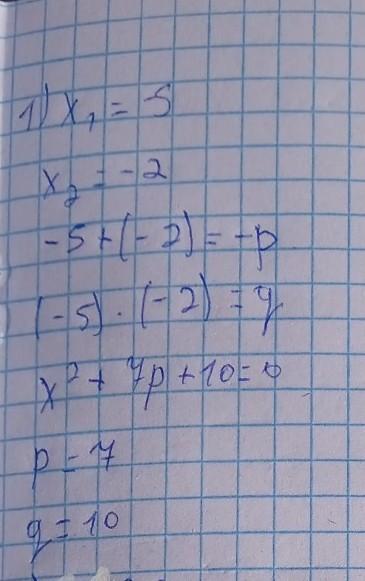 1) x₁ = 5
x₂ = -2
-5+(-2)=-p
(-5)·(-2)=q
x²+7p+10=0
p=7
q=10